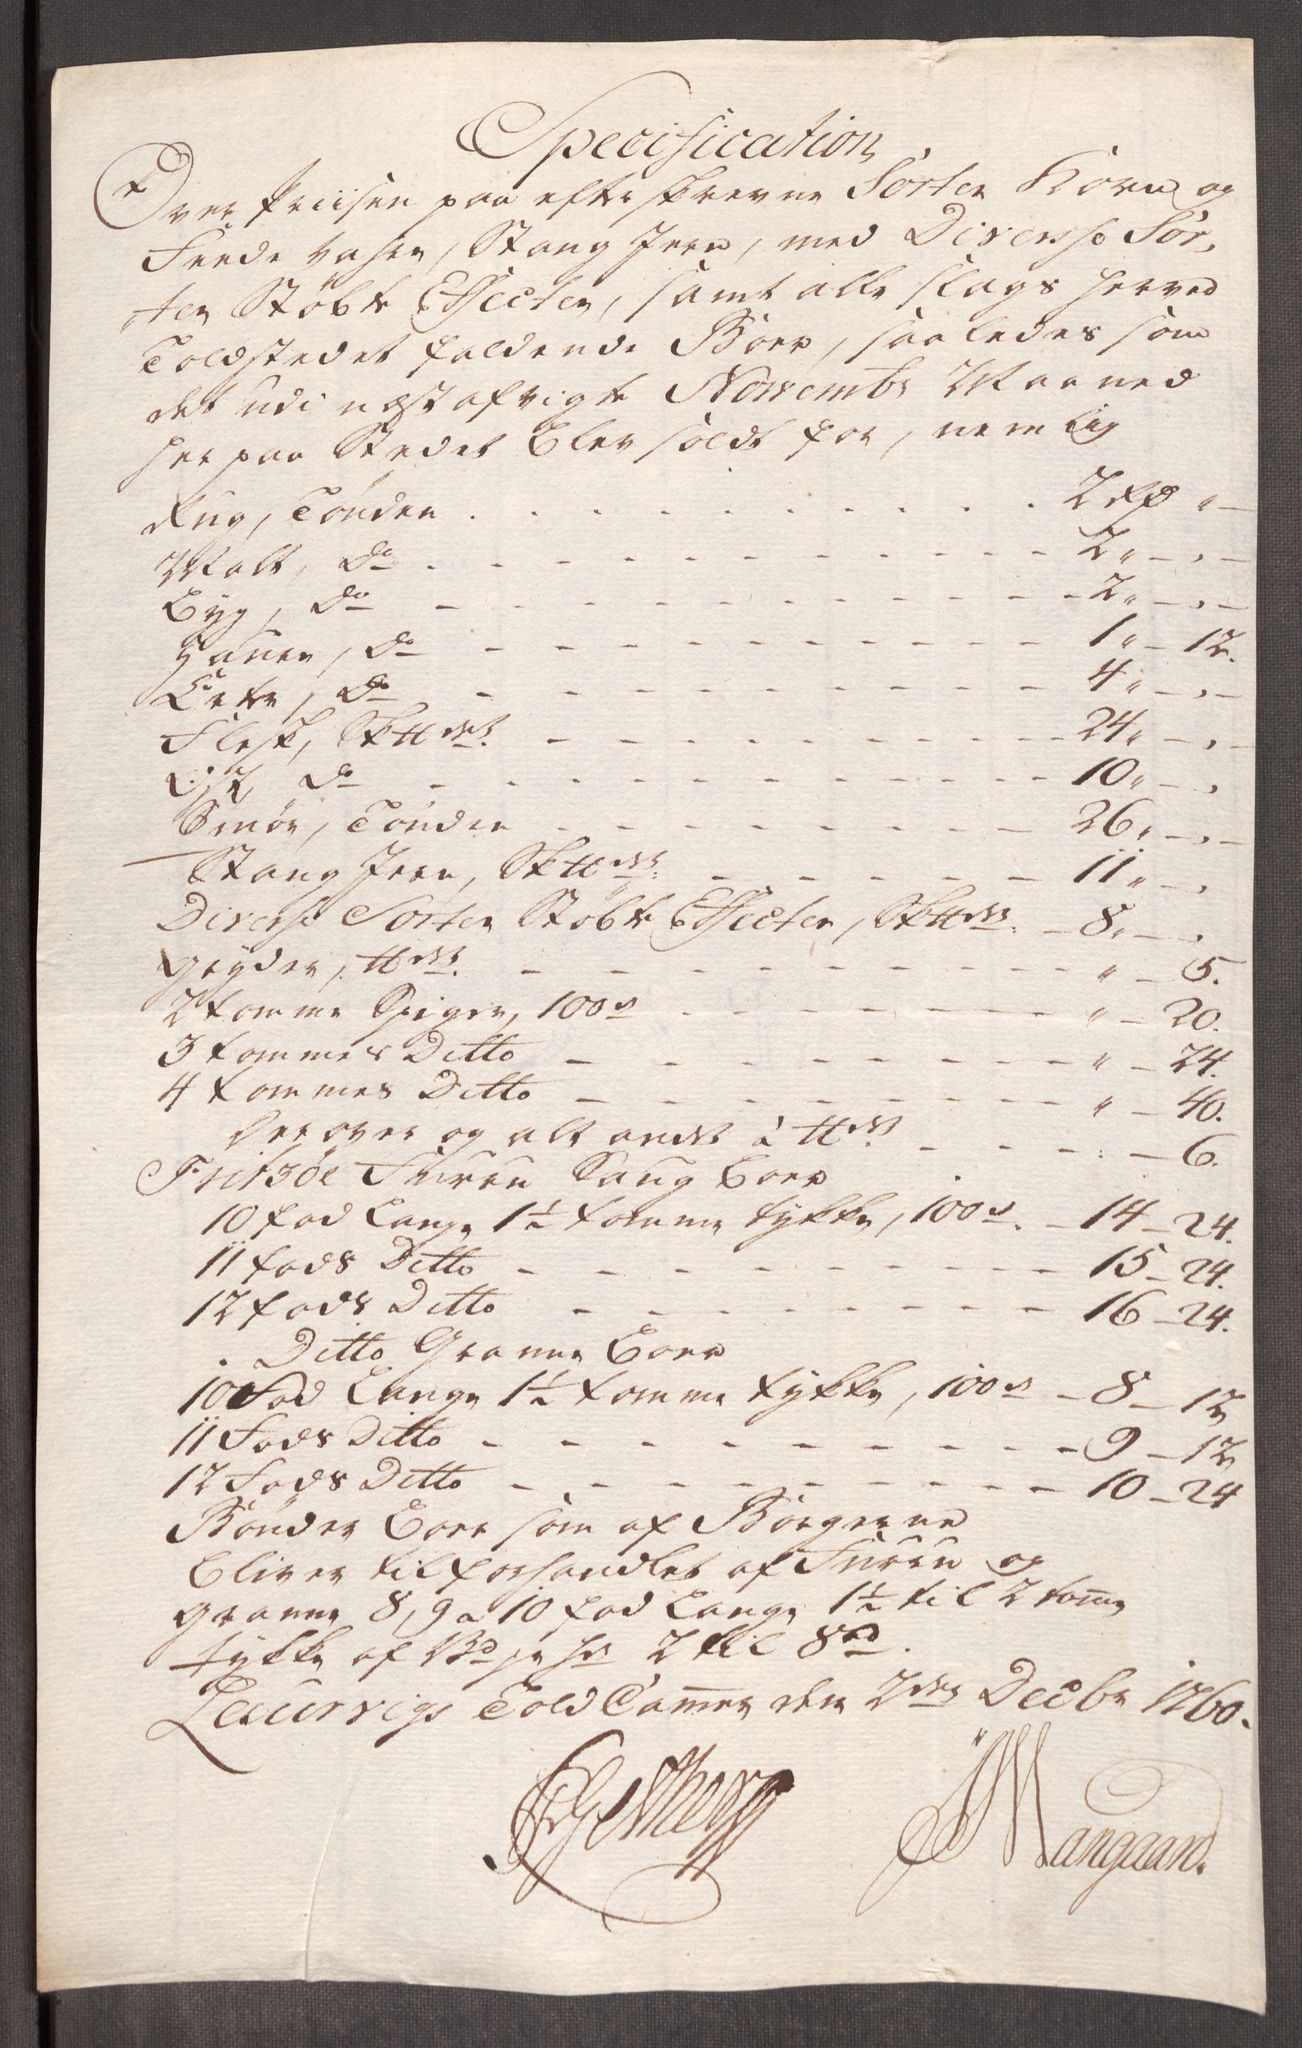 Specification
Over Priisen paa efterskrevne Sorter Korn og
Feede vaher, Stang Jern, med Diverse Sor-
ter Støbte Effecter, samt alle slags her ved
Toldstedet faldende Bord, saaledes som
det udi næstafvigte Novembr Maaned
her paa Stedet blev soldt for, nemlig
Rug, Tønden . . . . . . 2 Rd " —
Malt, do . - - - - - 2 " — " —
Byg, do - - - - - 2 " — " —
Haver, do - - - - - 1 " — 12.
Erter, do - - - - - 4 " — " —
Flesk, Sk℔det - - - - - 24 " — " —
do - - - - - 10 " — "
Smør, Tønden - - - - - 26 " — " —
Stang Jern, Sk℔det - - - - - 11 " — "
Diverse Sorter Støbte Effecter, Sk℔det. - 8 " — "
Gryder, ℔det. - - - - - " — 5.
2 tomme Spiger, 100de - - - - - " — 20.
3 tommes Ditto - - - - - " — 24.
4 tommes Ditto - - - - - " — 40.
Derover og alt andet à ℔det - - - - : — 6.
Fritzøe Furru Saug Bord
10 fod Lange 1½ tomme tykke, 100de. - 14 — 24.
11 fods Ditto - - - - - 15 — 24.
12 fods Ditto - - - - - 16 — 24.
Ditto Granne Bord
10 Fod Lange 1½ tomme tykke, 100de - 8 — 12
11 Fods Ditto - - - - - 9 — 12
12 Fods Ditto - - - - - 10 — 24
Bønder Bord som af Borgerne
bliver tilforhandlet af Furru og
Granne 8, 9 a 10 fod Lange 1½ til 2 tomme
tykke af 2 til 8 rd.
Laurvigs Told Camer den 2den Decbr 1760.
Mangaard.